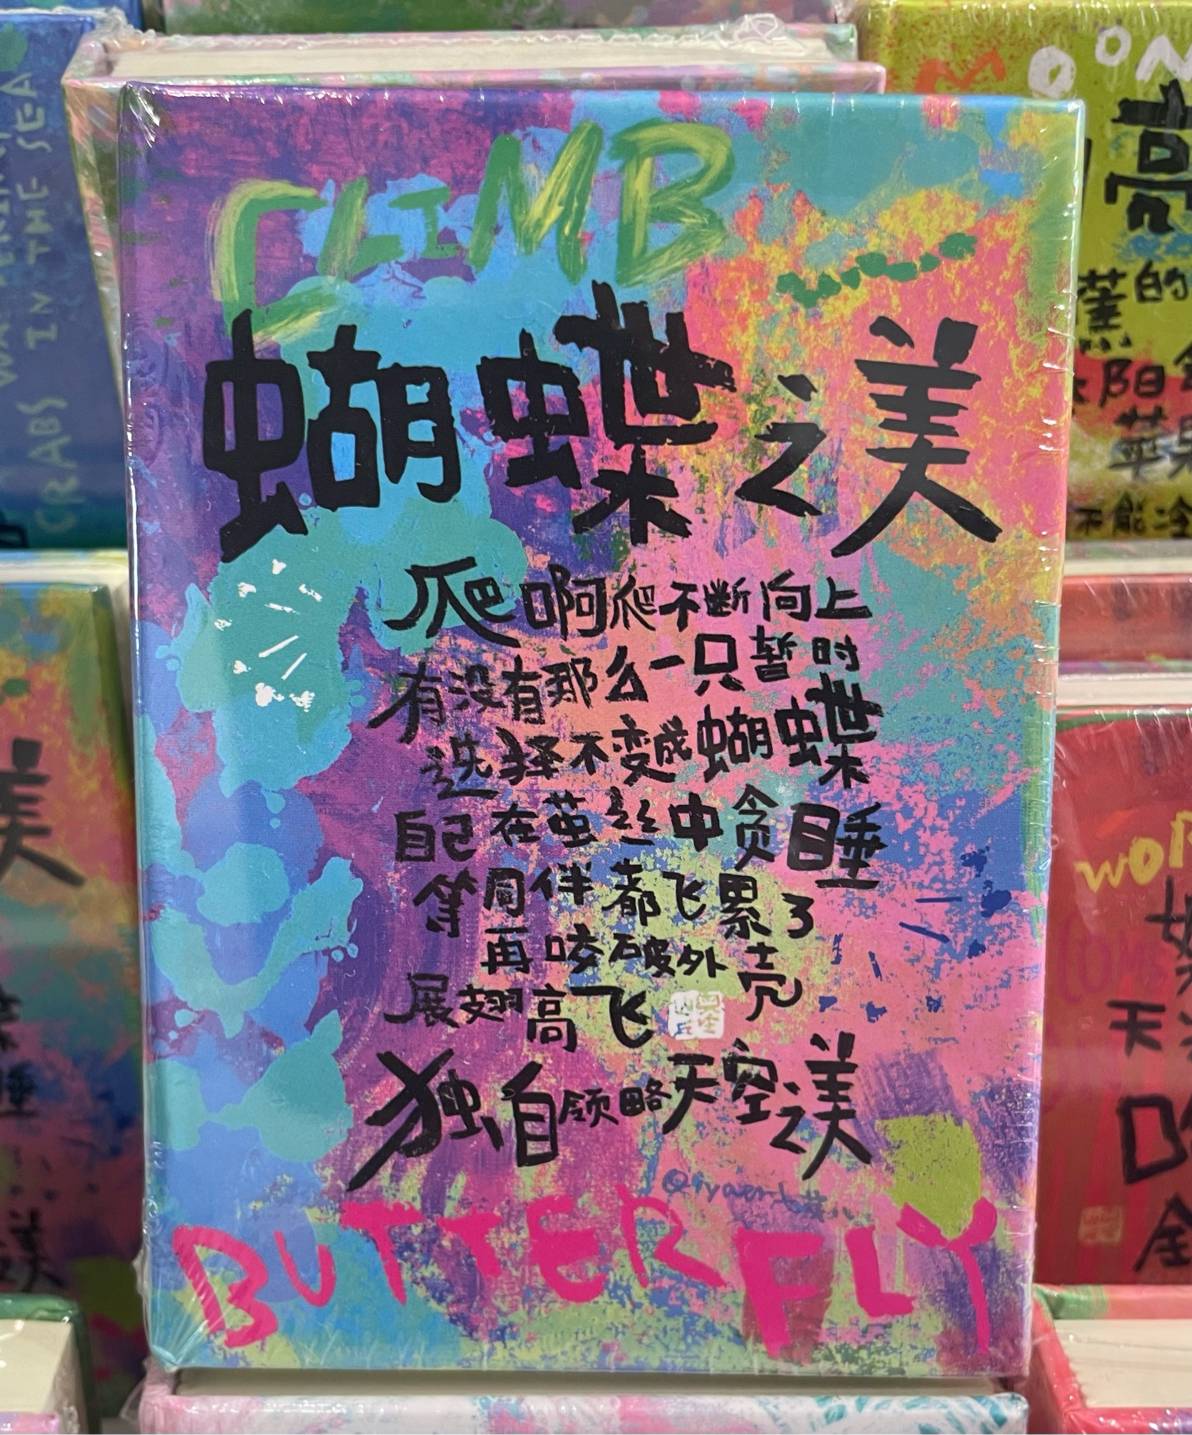 CLIMB
蝴蝶之美
爬啊爬不断向上
有没有那么一只暂时
选择不变成蝴蝶
自己在茧丝中贪睡
等周伴都飞累了
再咬破外壳
展翅高飞
独自领略天空之美
BUTTERFLY
CRABS IN THE SEA
MOON
亮
的
阳
苹果
不能冷
WOR
天
美
睡
美